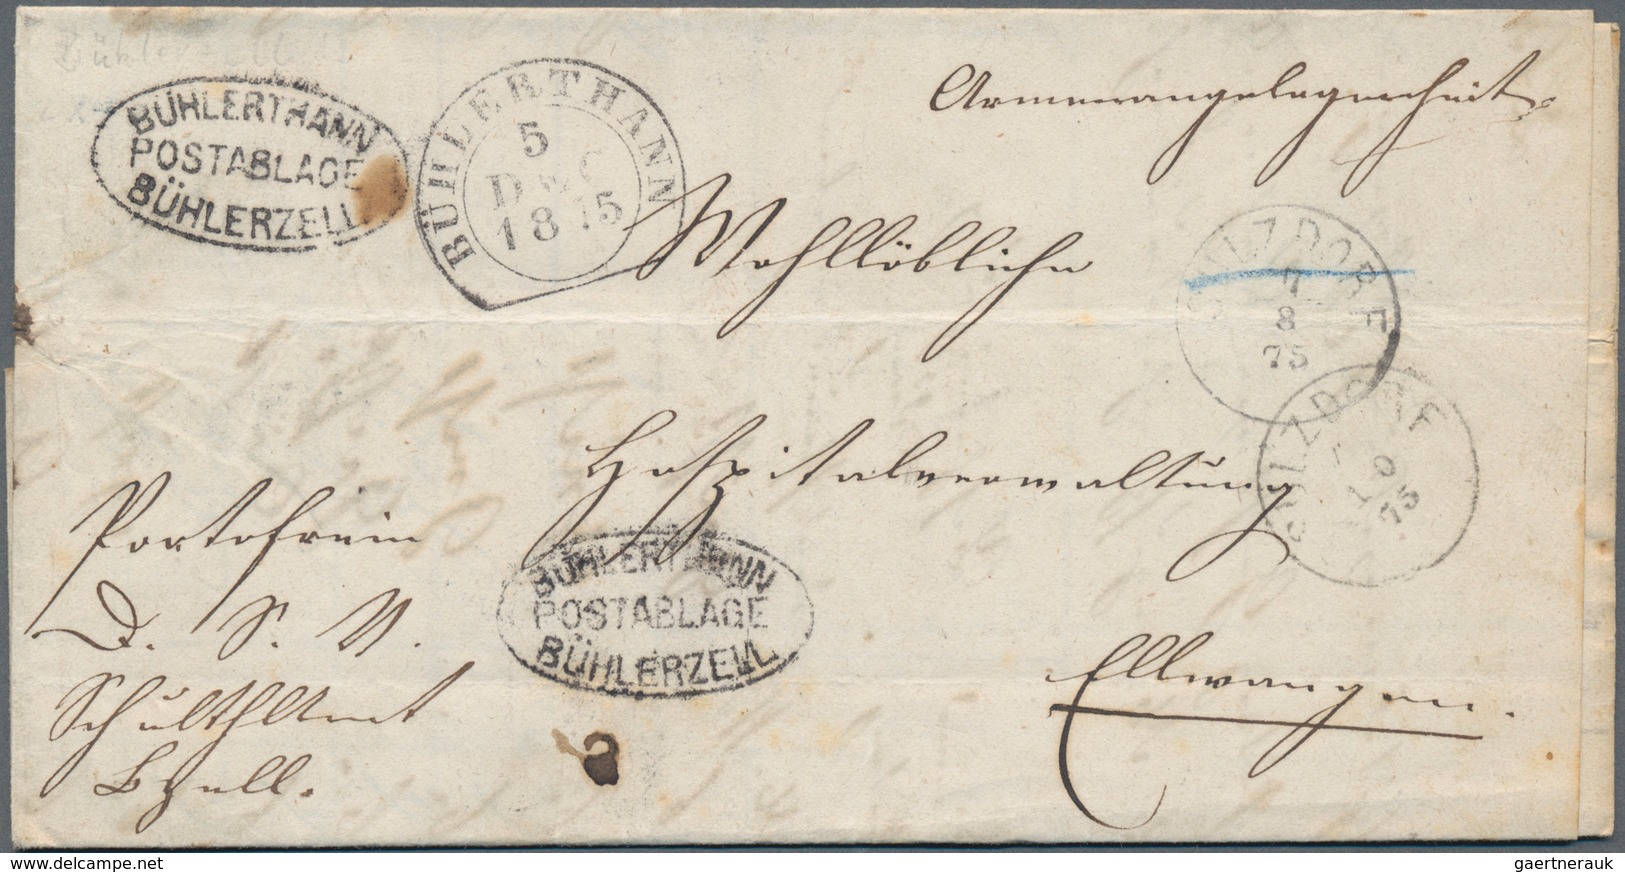 BÜHLERTHANN
POSTABLAGE
BÜHLERZELL
BÜHLERTHANN
5
DEC
1875
Armenangelegenheit
Wohllöbliche
SULZDORF
7
8
75
Hospitalverwaltung
SULZDORF
10
75
Portofrein
D. S. N.
Schulth.Amt
Bzell.
BÜHLERTHANN
POSTABLAGE
BÜHLERZELL
Ellwangen.
www.delcampe.net
gaertnerauk